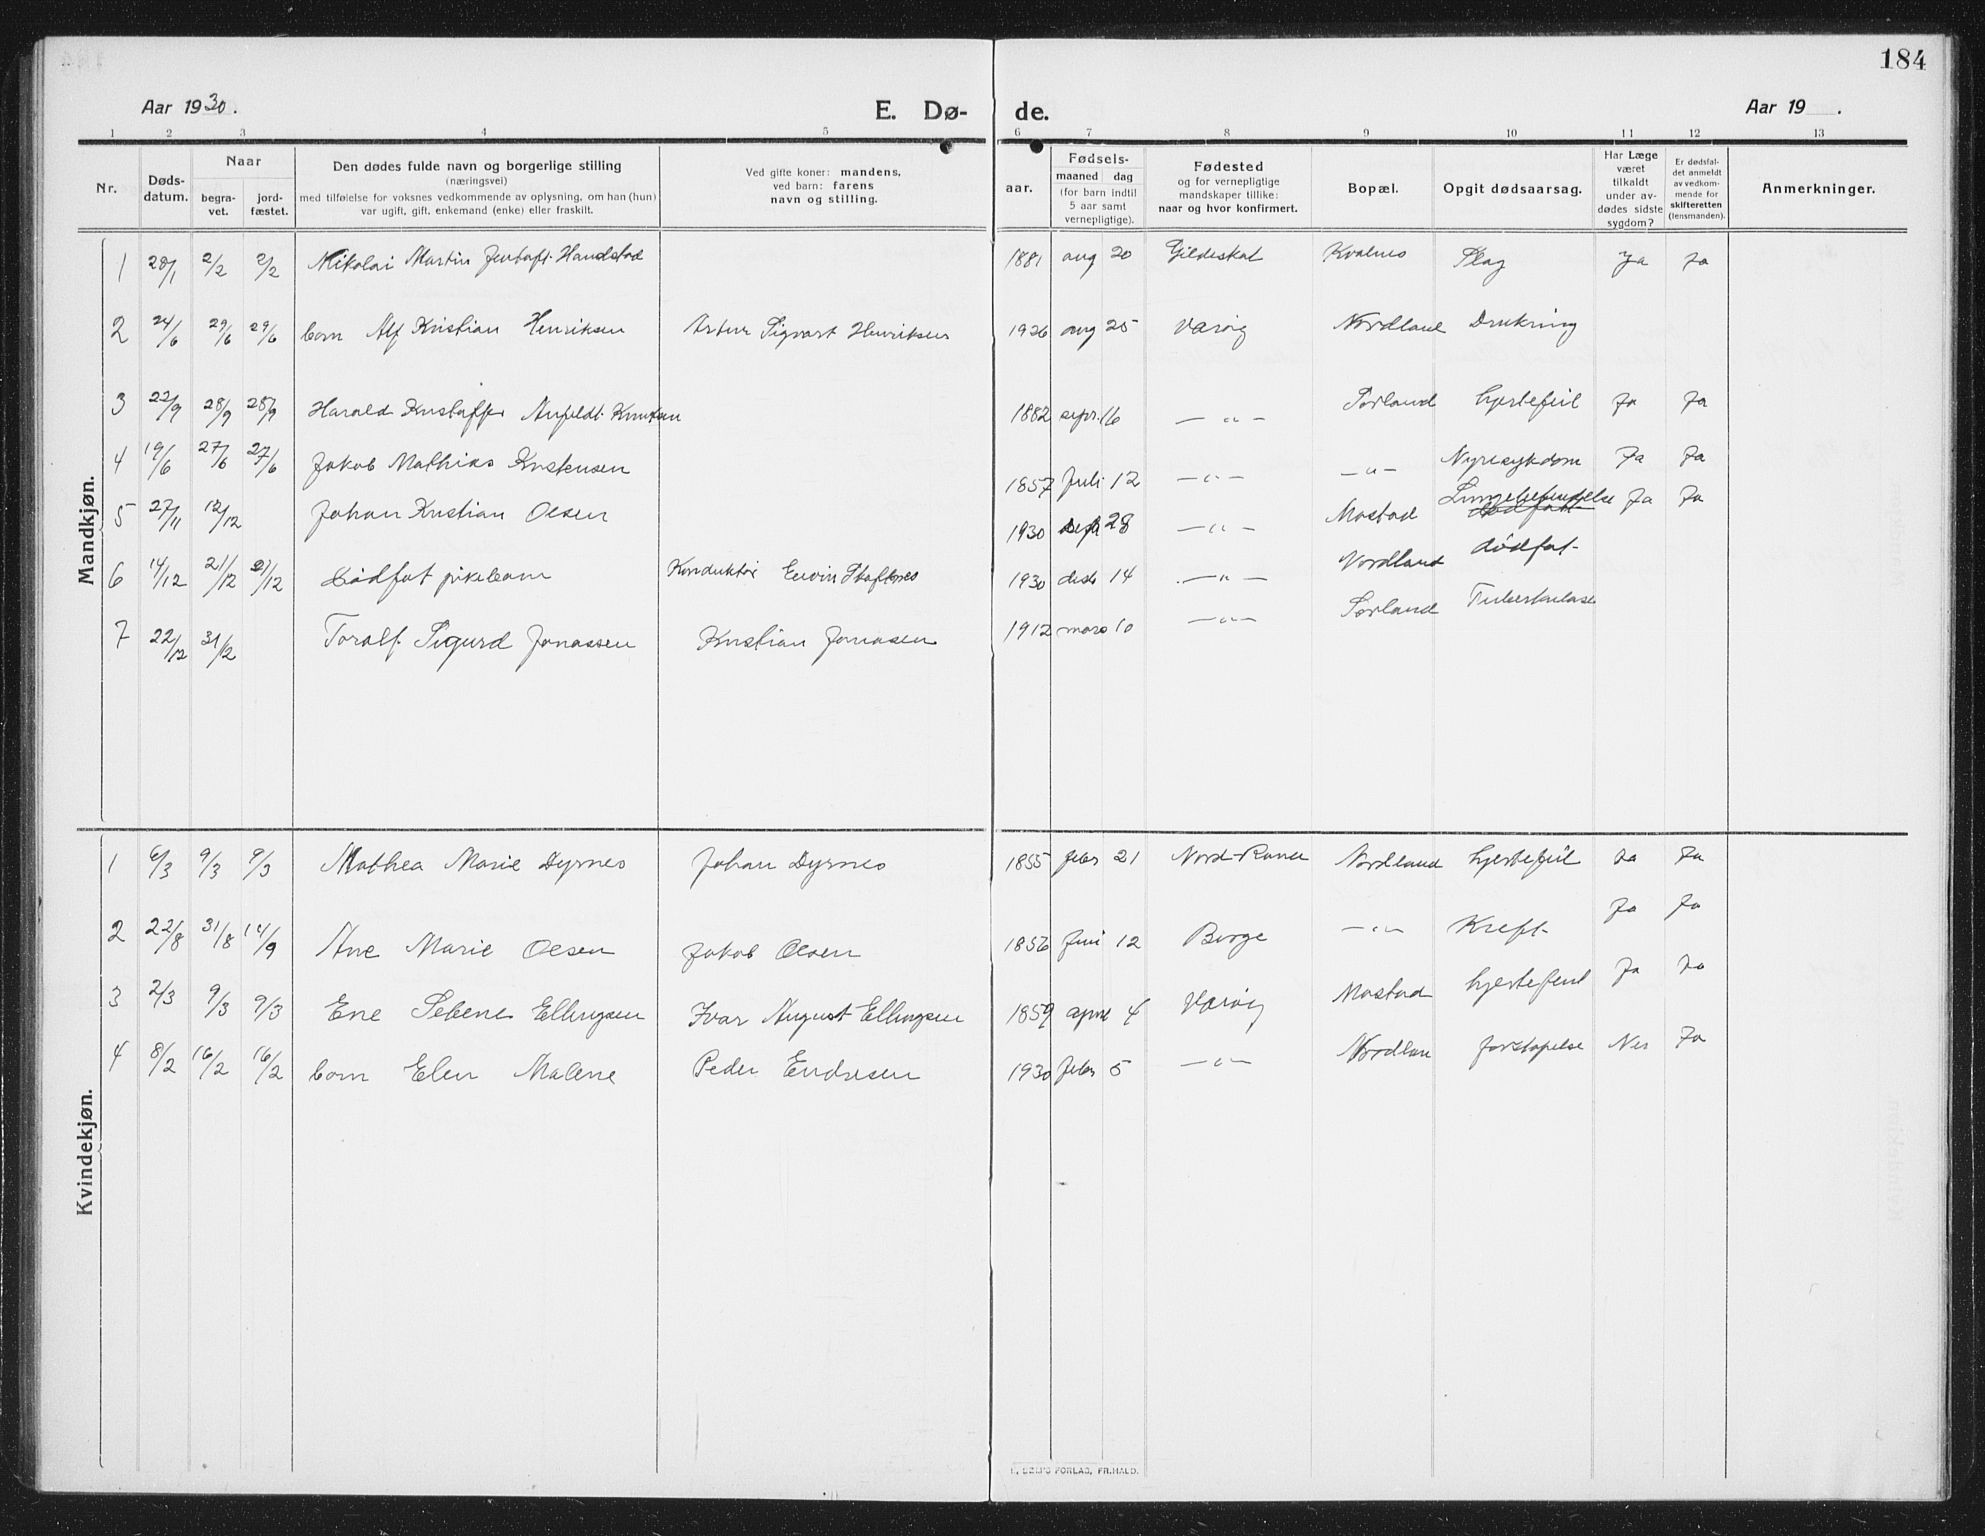 184
Aar 1930.
E. Dø- de.
Aar 19 .
1 2 3 4 5 6 7 8 9 10 11 12 13
Nr.
Døds-
datum.
Naar
begra-
vet.
jord-
fæstet.
Den dødes fulde navn og borgerlige stilling
(næringsvei)
med tilføielse for voksnes vedkommende av oplysning, om han (hun)
var ugift, gift, enkemand (enke) eller fraskilt.
Ved gifte koner: mandens,
ved barn: farens
navn og stilling.
Fødsels-
aar.
maaned dag
(for barn indtil
5 aar samt
vernepligtige).
Fødested
og for vernepligtige
mandskaper tillike:
naar og hvor konfirmert.
Bopæl.
Opgit dødsaarsag.
Har Læge
været
tilkaldt
under av-
dødes sidste
sygdom?
Er dødsfal-
det anmeldt
av vedkom-
mende for
skifteretten
(lensmanden).
Anmerkninger.
Mandkjøn.
1 28/1 2/2 2/2 Nikolai Martin Jentoft Handstad 1881 aug 20 Gildeskal Kvalnes Slag Ja Ja
2 24/6 29/6 29/6 barn Alf Kristian Henriksen Artur Sigvart Henriksen 1926 aug 25 Værøy Nordland Drukning
3 22/9 28/9 28/9 Harald Kristoffer Knutsen 1882 sept. 16 —"— Sørland hjertefeil Ja Ja
4 19/6 27/6 27/6 Jakob Mathias Kristensen 1857 Juli 12 —"— —"— Nyresykdom Ja Ja
5 27/11 12/12 Johan Kristian Olsen 1930 sept 28 —"— Mostad Lungebetendelse Ja Ja
6 14/12 21/12 21/12 Dødføt pikebarn Konduktør Ervin Stafsnes 1930 des 14 —"— Nordland dødføt
7 22/12 31/12 Toralf Sigurd Jonassen Kristian Jonasen 1912 mars 10 —"— Sørland Tuberkulose
Kvindekjøn.
1 6/3 9/3 9/3 Mathea Marie Dyrnes Johan Dyrnes 1855 febr 21 Nord-Rana Nordland hjertefeil Ja Ja
2 22/8 31/8 14/9 Ane Marie Olsen Jakob Olsen 1856 Juni 12 Borge —"— Kreft Ja Ja
3 2/3 9/3 9/3 Ene Sebene Ellingsen Ivar August Ellingsen 1859 april 4 Værøy Mostad hjertefeil Ja Ja
4 8/2 16/2 16/2 barn Elen Malene Peder Endresen 1930 febr 5 —"— Nordlan forstopelse Nei Ja
FORLAG, FR.HALD.